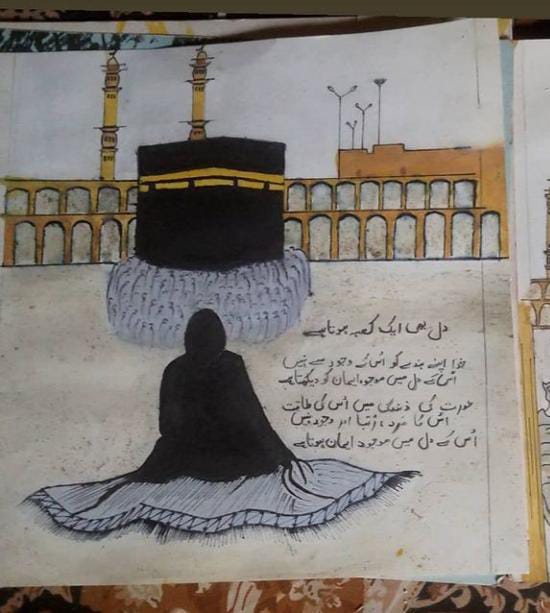 دل بھی ایک کعبہ ہوتا ہے
خدا اپنے بندے کو اُس کے وجود سے نہیں
اُس کے دل میں موجود ایمان کو دیکھتا ہے
عورت کی زندگی میں اُس کی طاقت
اُس کا مرد، دُنیا اور وجود نہیں
اُس کے دل میں موجود ایمان ہوتا ہے